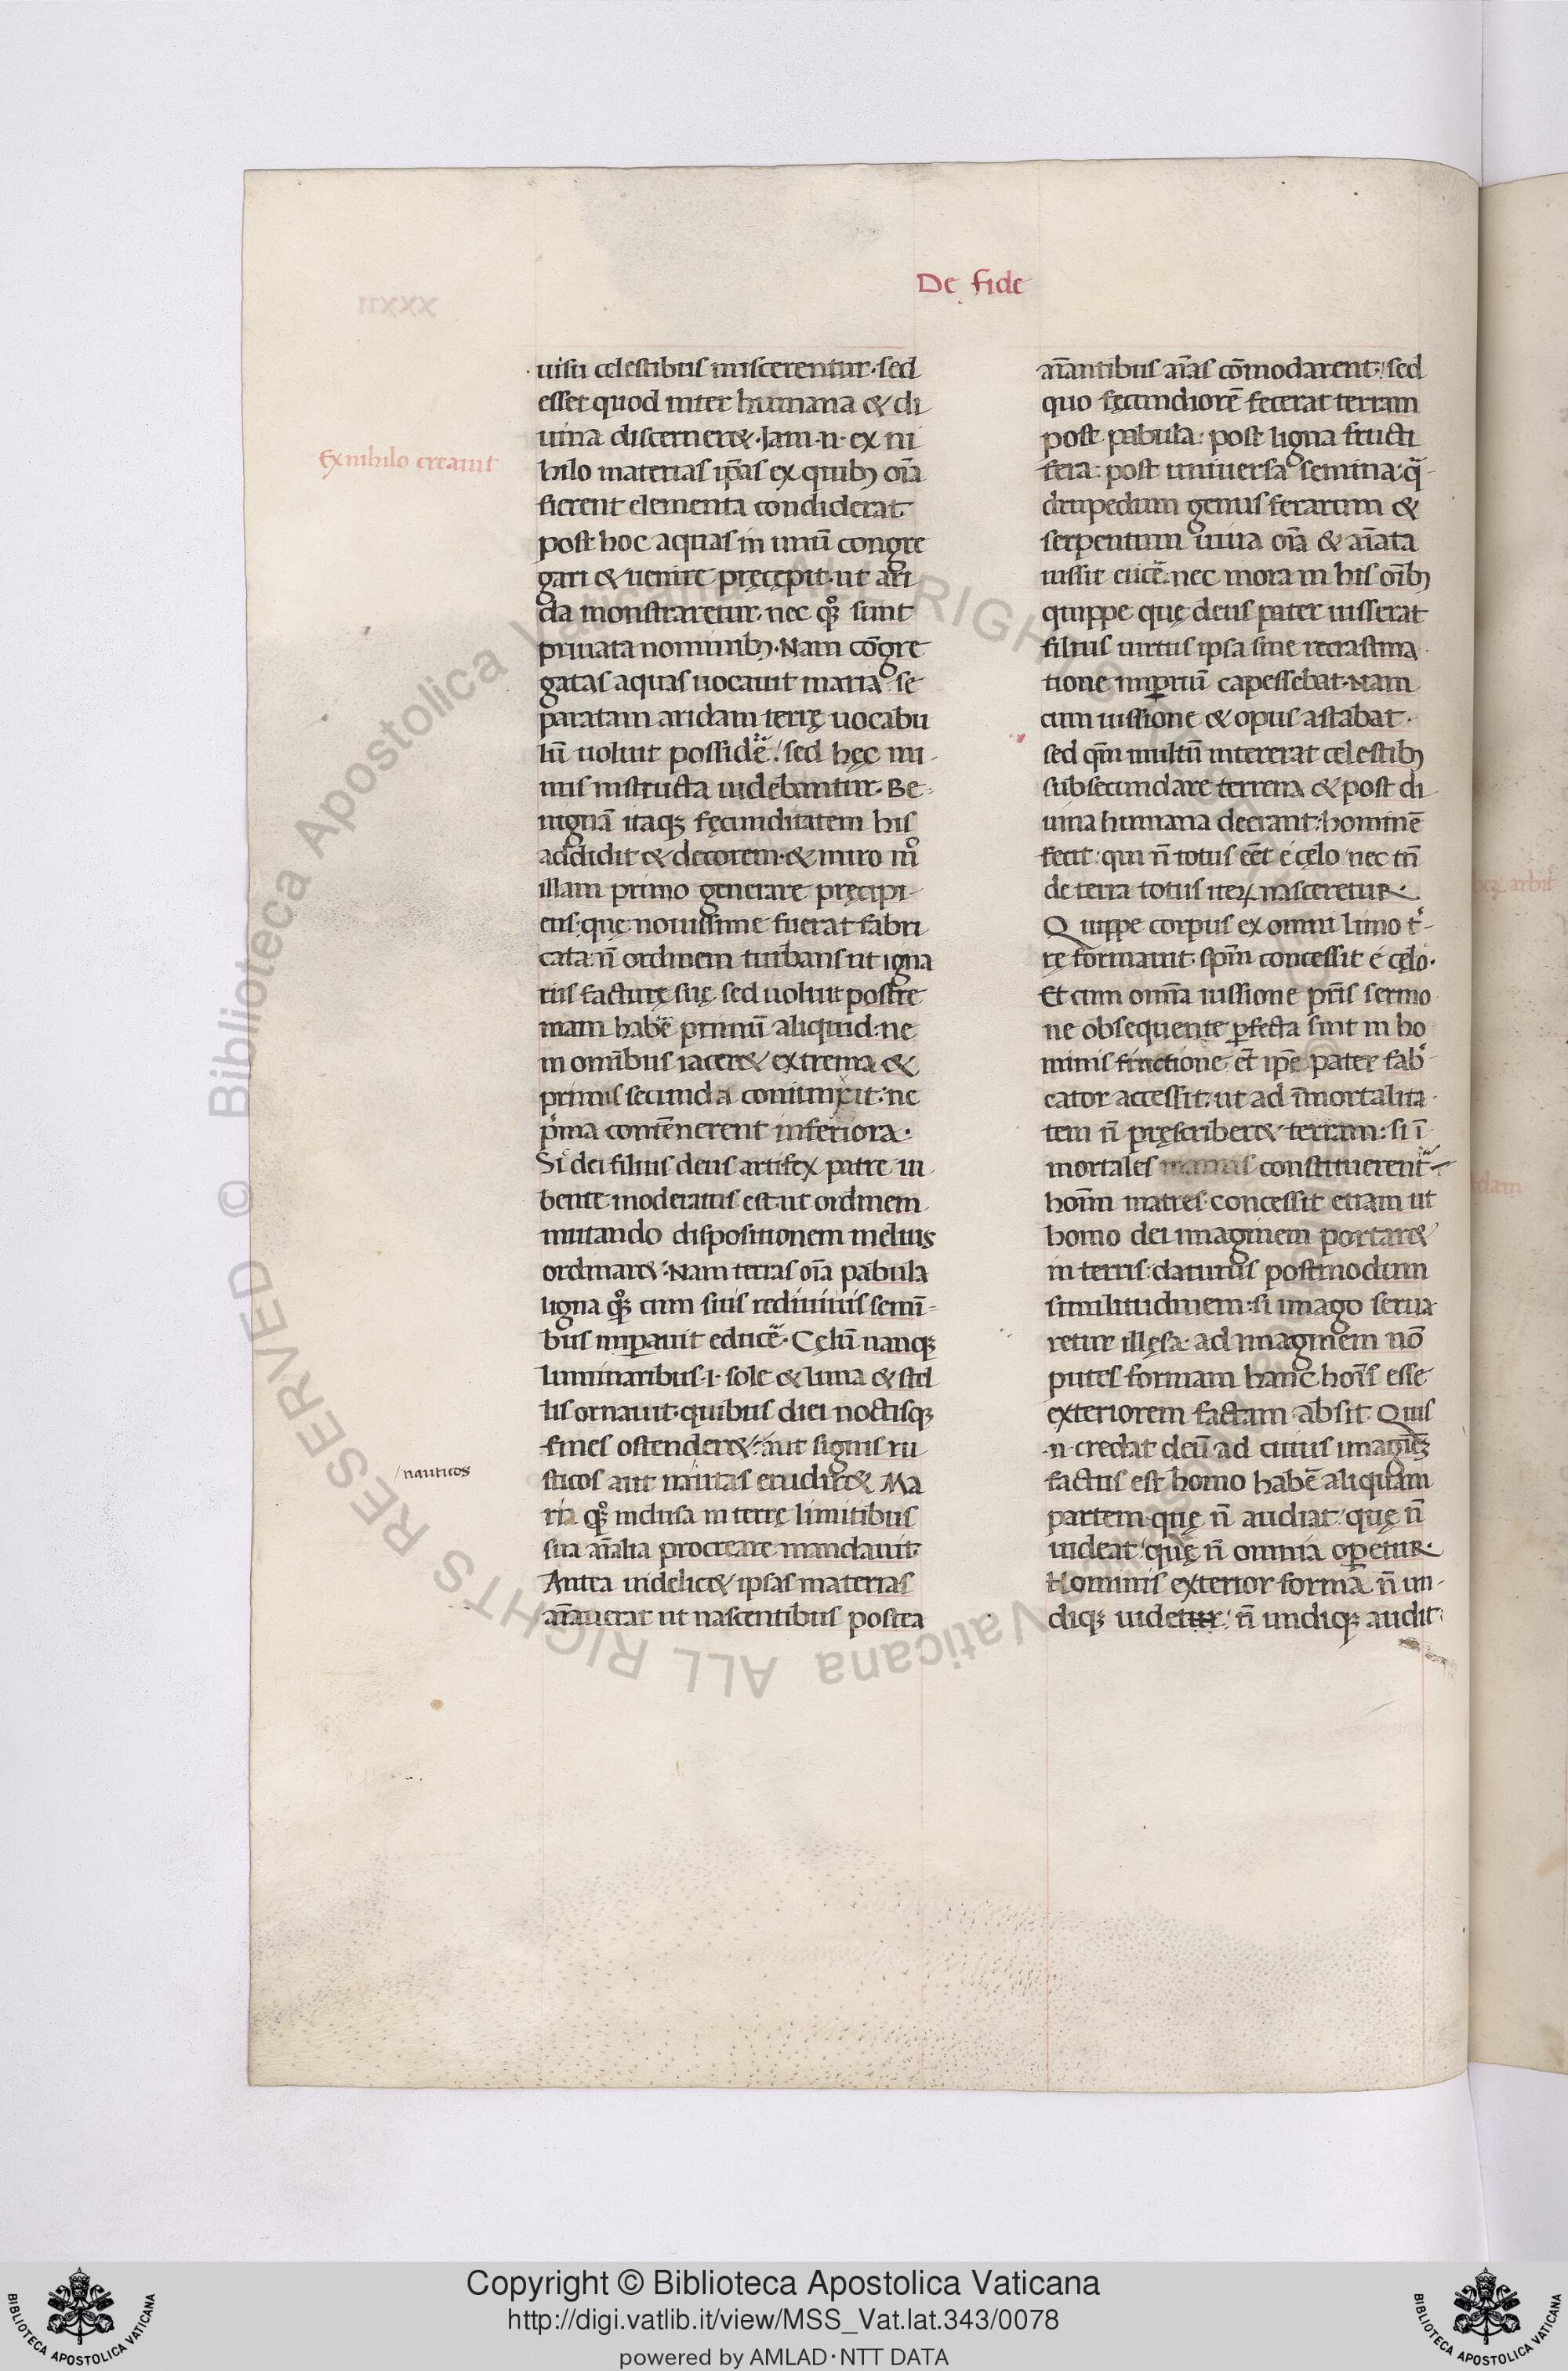 De fide
uisu celestibus miscerentur·sed
esset quod inter humana & di
uina discerner&·Jam·n·ex ni
Ex nihilo creauit
hilo materias ip̄as ex quibꝫ oīa
fierent elementa condiderat·
post hoc aquas in unū congre
gari & uenire pręcępit·ut ari
da monstraretur·nec qꝫ sunt
priuata nominibꝫ·Nam cōgre
gatas aquas uocauit maria·se
paratam aridam terrę uocabu
lū uoluit possidē·sed hęc mi
nus instructa uidebantur·Be-
nignā itaqꝫ fęcunditatem his
addidit & decorem·& miro mº
illam primo generare pręcipi
ens·quę nouissime fuerat fabri
cata·n̄ ordinem turbans ut igna
rus facturę suę sed uoluit postre
mam habē primū aliquid·ne
in omībus iacer& extrema &
primis secunda coniunxit·ne
pͥma contēnerent inferiora·
Si dei filius deus artifex patre iu
bente moderatus est·ut ordinem
mutando dispositionem melius
ordinar&·Nam terras oīa pabula
ligna qꝫ cum suis rediuiuis semī-
bus imꝑauit educē·Cęlū nanqꝫ
luminaribus·i·sole & luna & stel
lis ornauit·quibus diei noctisqꝫ
fines ostender&·aut signis ru
/nauticos
sticos aut nautas erudir& Ma
ria qꝫ inclusa in terrę limitibus
sua aīalia procreare mandauit·
Antea uidelic& ipsas materias
aīauerat ut nascentibus postea
aīantibus aīas cōmodarent·sed
quo fęcundiorē fecerat terram
post pabula·post ligna fructi
fera·post uniuersa semina·qͣ-
drupedum genus ferarum &
serpentum uiua oīa & aīata
iussit eiicē·nec mora in his oībꝫ
quippe quę deus pater iusserat
filius uirtus ipsa sine recrastina
tione imꝑiū capessebat·Nam
cum iussione & opus astabat·
sed qm̄ multū intererat celestibꝫ
subsecundare terrena & post di
uina humana deerant·hominē
fecit·qui n̄ totus eēt e cęlo nec tn̄
de terra totus iteꝝ nasceretur·
Quippe corpus ex omni limo t̉-
rę formauit·spm̄ concessit e cęlo·
Et cum omīa iussione pr̄is sermo
ne obsequente ꝑfecta sint in ho
minis finctione et ip̄e pater fabͥ-
cator accessit·ut ad īmortalita
tem n̄ pręscriber& terram·si ī
mortales manus constituerent̉
hoīm matres·concessit etiam ut
homo dei imaginem portar&
in terris·daturus postmodum
similitudinem·si imago serua
retur illęsa·ad imaginem nō
putes formam hanc hoīs esse
exteriorem factam·absit·Quis
·n·credat deū ad cuius imaginē
factus est homo habē aliquam
partem·quę n̄ audiat·quę n̄
uideat·quę n̄ omnia oꝑetur·
Hominis exterior forma n̄ un-
diqꝫ uidetur·n̄ undiqꝫ audit
© Biblioteca Apostolica Vaticana ALL RIGHTS RESERVED
Copyright © Biblioteca Apostolica Vaticana
http://digi.vatlib.it/view/MSS_Vat.lat.343/0078
powered by AMLAD·NTT DATA
BIBLIOTECA APOSTOLICA VATICANA
BIBLIOTECA APOSTOLICA VATICANA